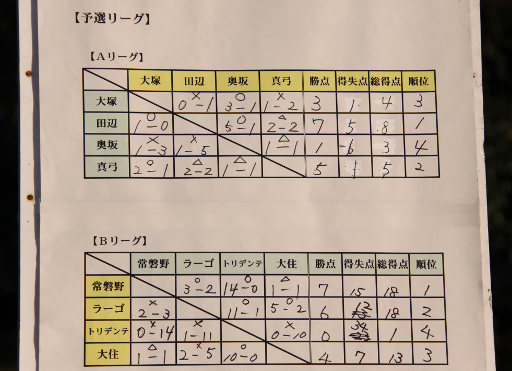 【予選リーグ】
【Aリーグ】
大塚 田辺 奥坂 真弓 勝点 得失点 総得点 順位
大塚 × 0-1 ○ 3-1 × 1-2 3 1 4 3
田辺 ○ 1-0 ○ 5-1 △ 2-2 7 5 8 1
奥坂 × 1-3 × 1-5 △ 1-1 1 -6 3 4
真弓 ○ 2-1 △ 2-2 △ 1-1 5 1 5 2
【Bリーグ】
常磐野 ラーゴ トリデンテ 大住 勝点 得失点 総得点 順位
常磐野 ○ 3-2 ○ 14-0 △ 1-1 7 15 18 1
ラーゴ × 2-3 ○ 11-1 ○ 5-2 6 12 18 2
トリデンテ × 0-14 × 1-11 × 0-10 0 34 1 4
大住 △ 1-1 × 2-5 ○ 10-0 4 7 13 3